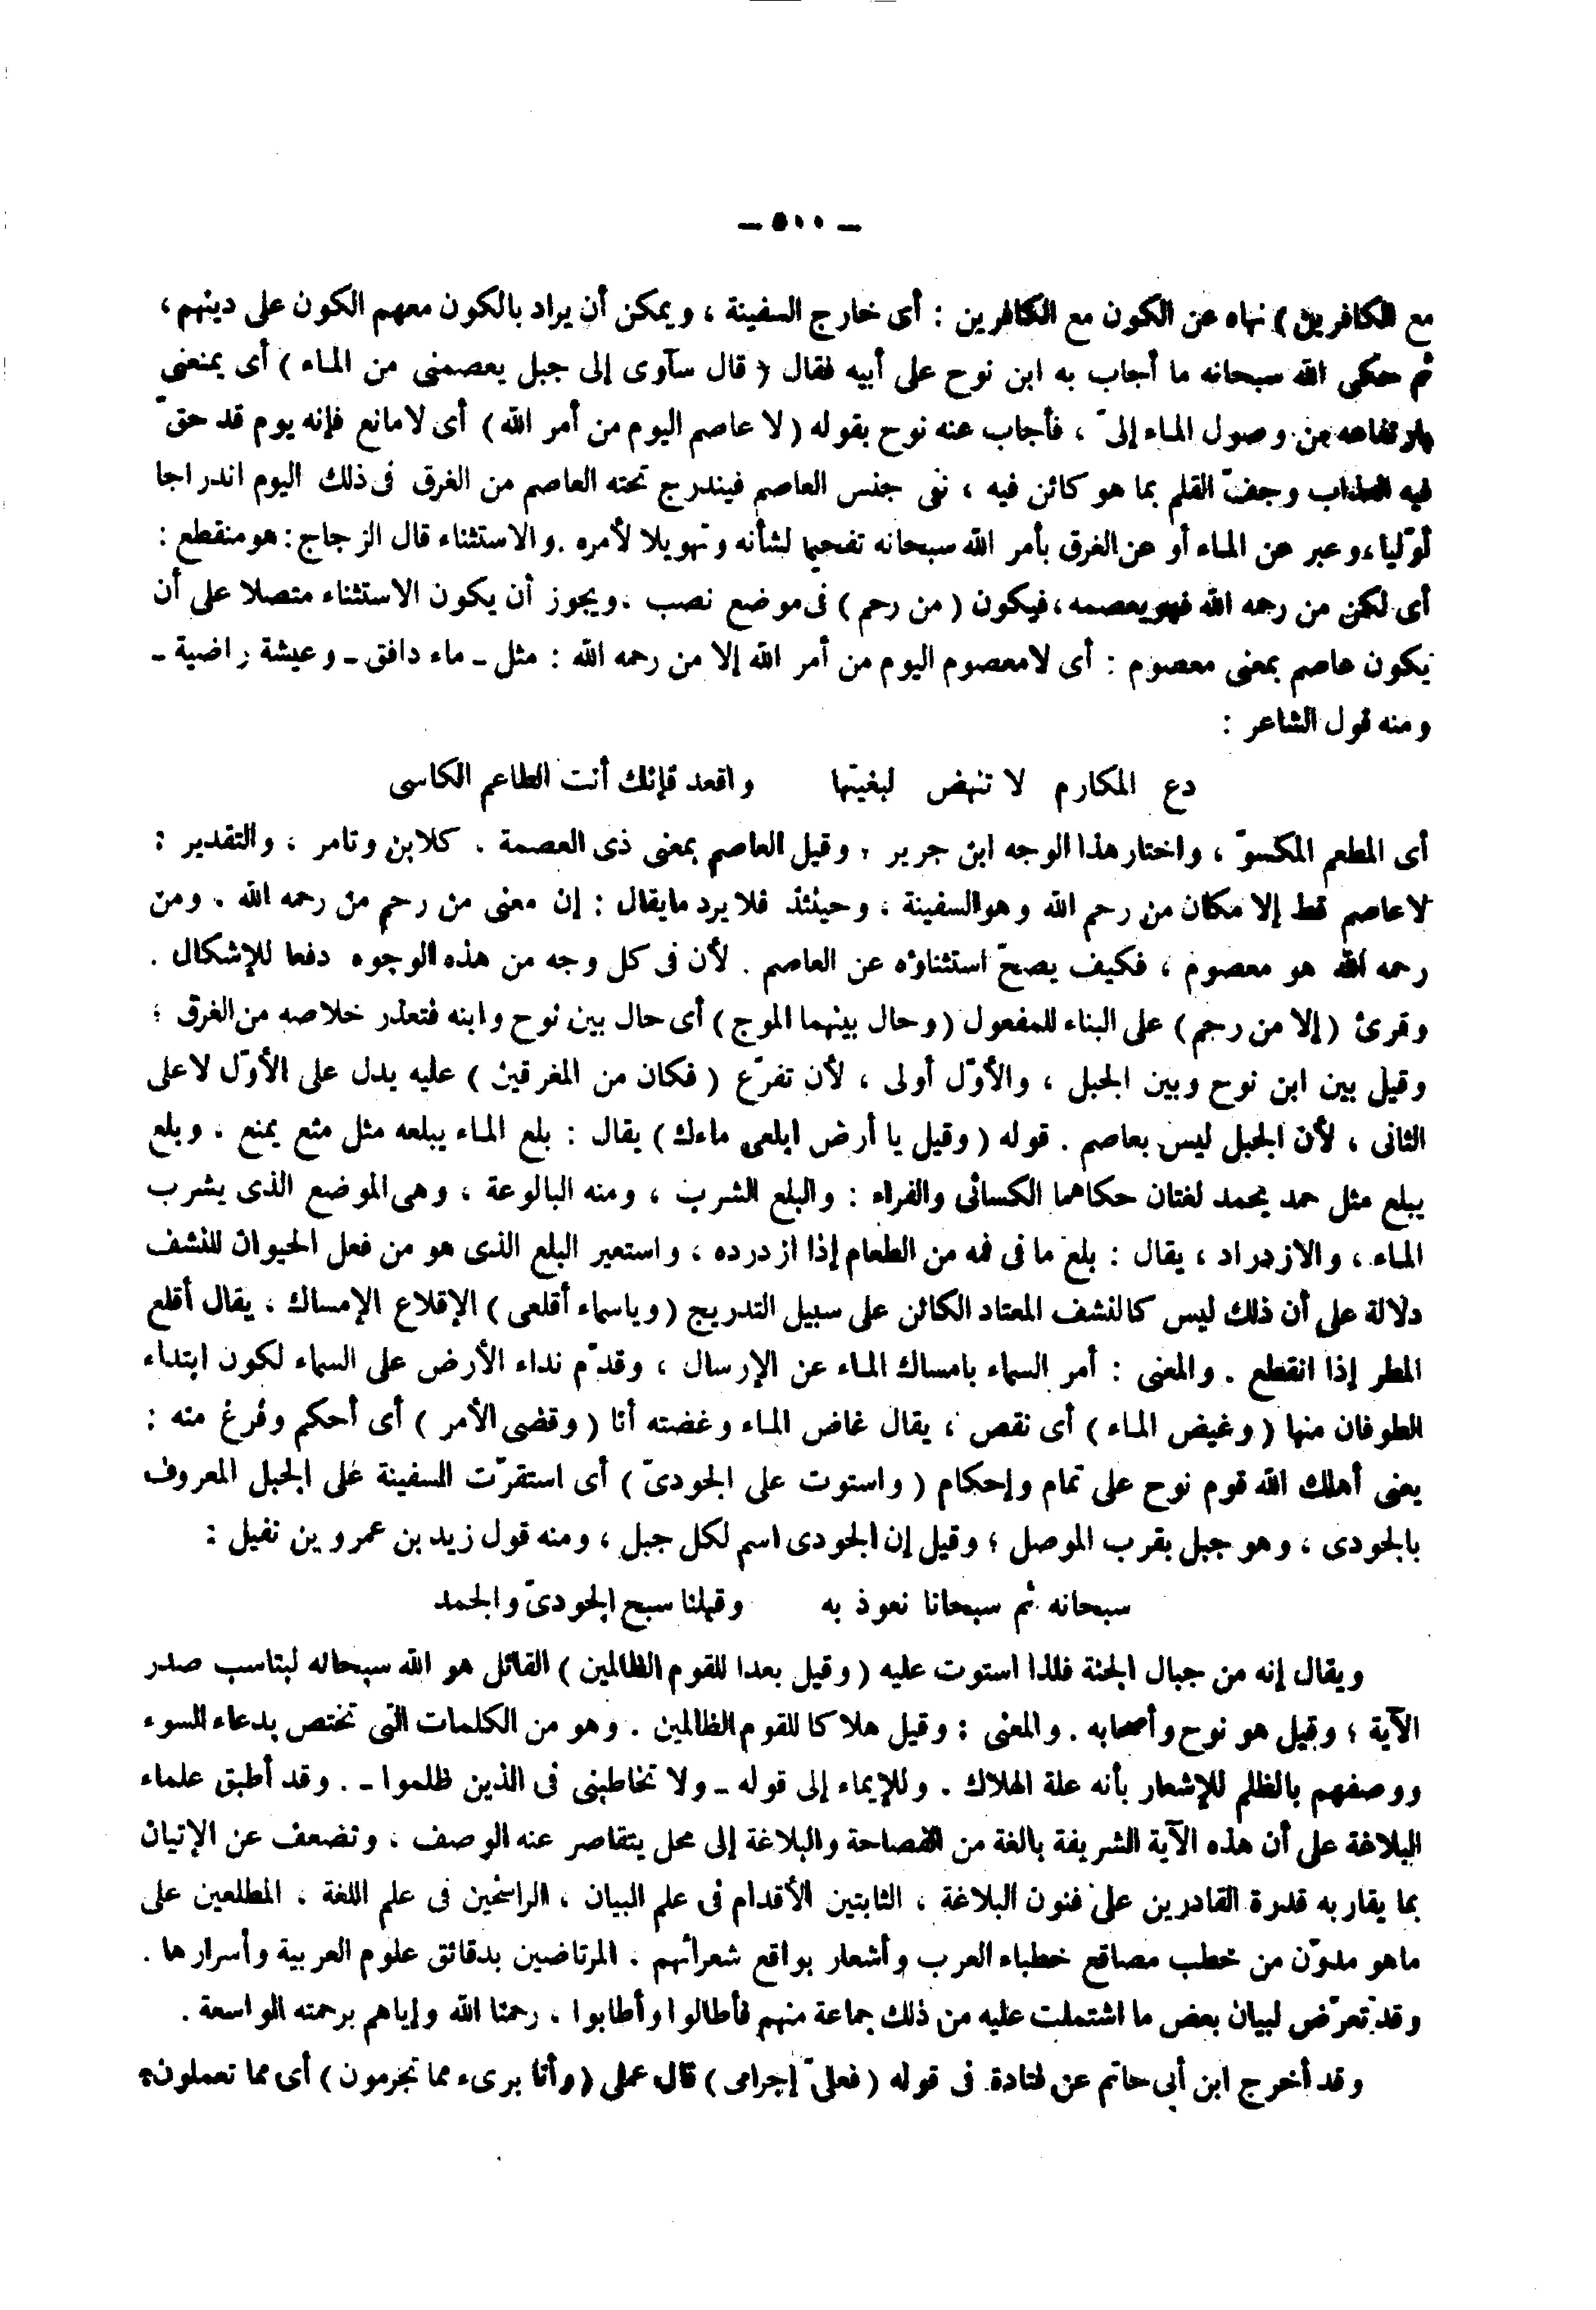 ـ ٥٠٠ ـ
مع الكافرين ) نهاه عن الكون مع الكافرين : أى خارج السفينة ، ويمكن أن يراد بالكون معهم الكون على دينهم ،
ثم حكى الله سبحانه ما أجاب به ابن نوح على أبيه فقال ( قال سآوى إلى جبل يعصمنى من الماء ) أى يمنعنى
بارتفاعه من وصول الماء إلىّ ، فأجاب عنه نوح بقوله ( لا عاصم اليوم من أمر الله ) أى لامانع فإنه يوم قد حقّ
فيه العذاب وجفّ القلم بما هو كائن فيه ، نفى جنس العاصم فيندرج تحته العاصم من الغرق فى ذلك اليوم اندراجا
أوّليا ، وعبر عن الماء أو عن الغرق بأمر الله سبحانه تفخيما لشأنه وتهويلا لأمره . والاستثناء قال الزجاج : هو منقطع :
أى لكن من رحمه الله فهو يعصمه ، فيكون ( من رحم ) فى موضع نصب . ويجوز أن يكون الاستثناء متصلا على أن
يكون عاصم بمعنى معصوم : أى لامعصوم اليوم من أمر الله إلا من رحمه الله : مثل ـ ماء دافق ـ وعيشة راضية ـ
ومنه قول الشاعر :
دع المكارم لا تنهض لبغيتها واقعد فإنك أنت الطاعم الكاسى
أى المطعم المكسوّ ، واختار هذا الوجه ابن جرير ، وقيل العاصم بمعنى ذى العصمة . كلابن وتامر ، والتقدير :
لاعاصم قط إلا مكان من رحم الله وهو السفينة ، وحينئذ فلا يرد مايقال : إن معنى من رحم من رحمه الله . ومن
رحمه الله هو معصوم ، فكيف يصحّ استثناؤه عن العاصم . لأن فى كل وجه من هذه الوجوه دفعا للإشكال .
وقرئ ( إلا من رحم ) على البناء للمفعول ( وحال بينهما الموج ) أى حال بين نوح وابنه فتعذر خلاصه من الغرق ؛
وقيل بين ابن نوح وبين الجبل ، والأوّل أولى ، لأن تفرّع ( فكان من المغرقين ) عليه يدل على الأوّل لاعلى
الثانى ، لأن الجبل ليس بعاصم . قوله ( وقيل يا أرض ابلعى ماءك ) يقال : بلع الماء يبلعه مثل منع يمنع ، وبلع
يبلع مثل حمد يحمد لغتان حكاهما الكسائى والفراء : والبلع الشرب ، ومنه البالوعة ، وهى الموضع الذى يشرب
الماء ، والازدراد ، يقال : بلع ما فى فمه من الطعام إذا ازدرده ، واستعير البلع الذى هو من فعل الحيوان للنشف
دلالة على أن ذلك ليس كالنشف المعتاد الكائن على سبيل التدريج ( وياسماء أقلعى ) الإقلاع الإمساك ، يقال أقلع
المطر إذا انقطع . والمعنى : أمر السماء بامساك الماء عن الإرسال ، وقدّم نداء الأرض على السماء لكون ابتداء
الطوفان منها ( وغيض الماء ) أى نقص ، يقال غاض الماء وغضته أنا ( وقضى الأمر ) أى أحكم وفُرغ منه :
يعنى أهلك الله قوم نوح على تمام وإحكام ( واستوت على الجودىّ ) أى استقرّت السفينة على الجبل المعروف
بالجودى ، وهو جبل بقرب الموصل ؛ وقيل إن الجودى اسم لكل جبل ، ومنه قول زيد بن عمرو بن نفيل :
سبحانه ثم سبحانا نعوذ به وقبلنا سبح الجودىّ والجمد
ويقال إنه من جبال الجنة فلذا استوت عليه ( وقيل بعدا للقوم الظالمين ) القائل هو الله سبحانه ليناسب صدر
الآية ؛ وقيل هو نوح وأصحابه . والمعنى : وقيل هلاكا للقوم الظالمين . وهو من الكلمات التى تختص بدعاء السوء
ووصفهم بالظلم للإشعار بأنه علة الهلاك . وللإيماء إلى قوله ـ ولا تخاطبنى فى الذين ظلموا ـ . وقد أطبق علماء
البلاغة على أن هذه الآية الشريفة بالغة من الفصاحة والبلاغة إلى محل يتقاصر عنه الوصف ، وتضعف عن الإتيان
بما يقاربه قدرة القادرين على فنون البلاغة ، الثابتين الأقدام فى علم البيان ، الراسخين فى علم اللغة ، المطلعين على
ماهو مدوّن من خطب مصاقع خطباء العرب وأشعار بواقع شعرائهم ، المرتاضين بدقائق علوم العربية وأسرارها .
وقد تعرّض لبيان بعض ما اشتملت عليه من ذلك جماعة منهم فأطالوا وأطابوا ، رحمنا الله وإياهم برحمته الواسعة .
وقد أخرج ابن أبى حاتم عن قتادة فى قوله ( فعلىّ إجرامى ) قال عملى ( وأنا برىء مما تجرمون ) أى مما تعملون .